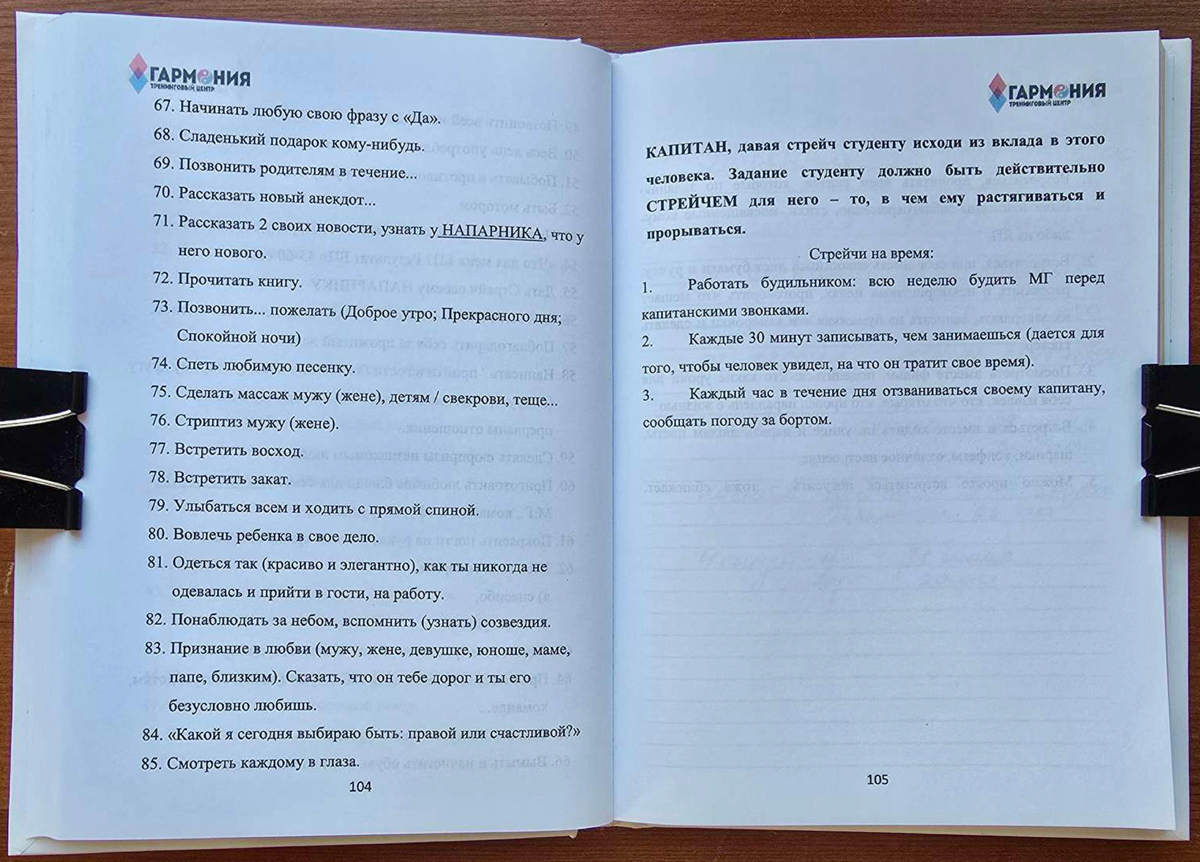 ГАРМОНИЯ
ТРЕНИНГОВЫЙ ЦЕНТР
67. Начинать любую свою фразу с «Да».
68. Сладенький подарок кому-нибудь.
69. Позвонить родителям в течение...
70. Рассказать новый анекдот...
71. Рассказать 2 своих новости, узнать у НАПАРНИКА, что у
него нового.
72. Прочитать книгу.
73. Позвонить... пожелать (Доброе утро; Прекрасного дня;
Спокойной ночи)
74. Спеть любимую песенку.
75. Сделать массаж мужу (жене), детям / свекрови, теще...
76. Стриптиз мужу (жене).
77. Встретить восход.
78. Встретить закат.
79. Улыбаться всем и ходить с прямой спиной.
80. Вовлечь ребенка в свое дело.
81. Одеться так (красиво и элегантно), как ты никогда не
одевалась и прийти в гости, на работу.
82. Понаблюдать за небом, вспомнить (узнать) созвездия.
83. Признание в любви (мужу, жене, девушке, юноше, маме,
папе, близким). Сказать, что он тебе дорог и ты его
безусловно любишь.
84. «Какой я сегодня выбираю быть: правой или счастливой?»
85. Смотреть каждому в глаза.
104
ГАРМОНИЯ
ТРЕНИНГОВЫЙ ЦЕНТР
КАПИТАН, давая стрейч студенту исходи из вклада в этого
человека. Задание студенту должно быть действительно
СТРЕЙЧЕМ для него – то, в чем ему растягиваться и
прорываться.
Стрейчи на время:
1. Работать будильником: всю неделю будить МГ перед
капитанскими звонками.
2. Каждые 30 минут записывать, чем занимаешься (дается для
того, чтобы человек увидел, на что он тратит свое время).
3. Каждый час в течение дня отзваниваться своему капитану,
сообщать погоду за бортом.
105